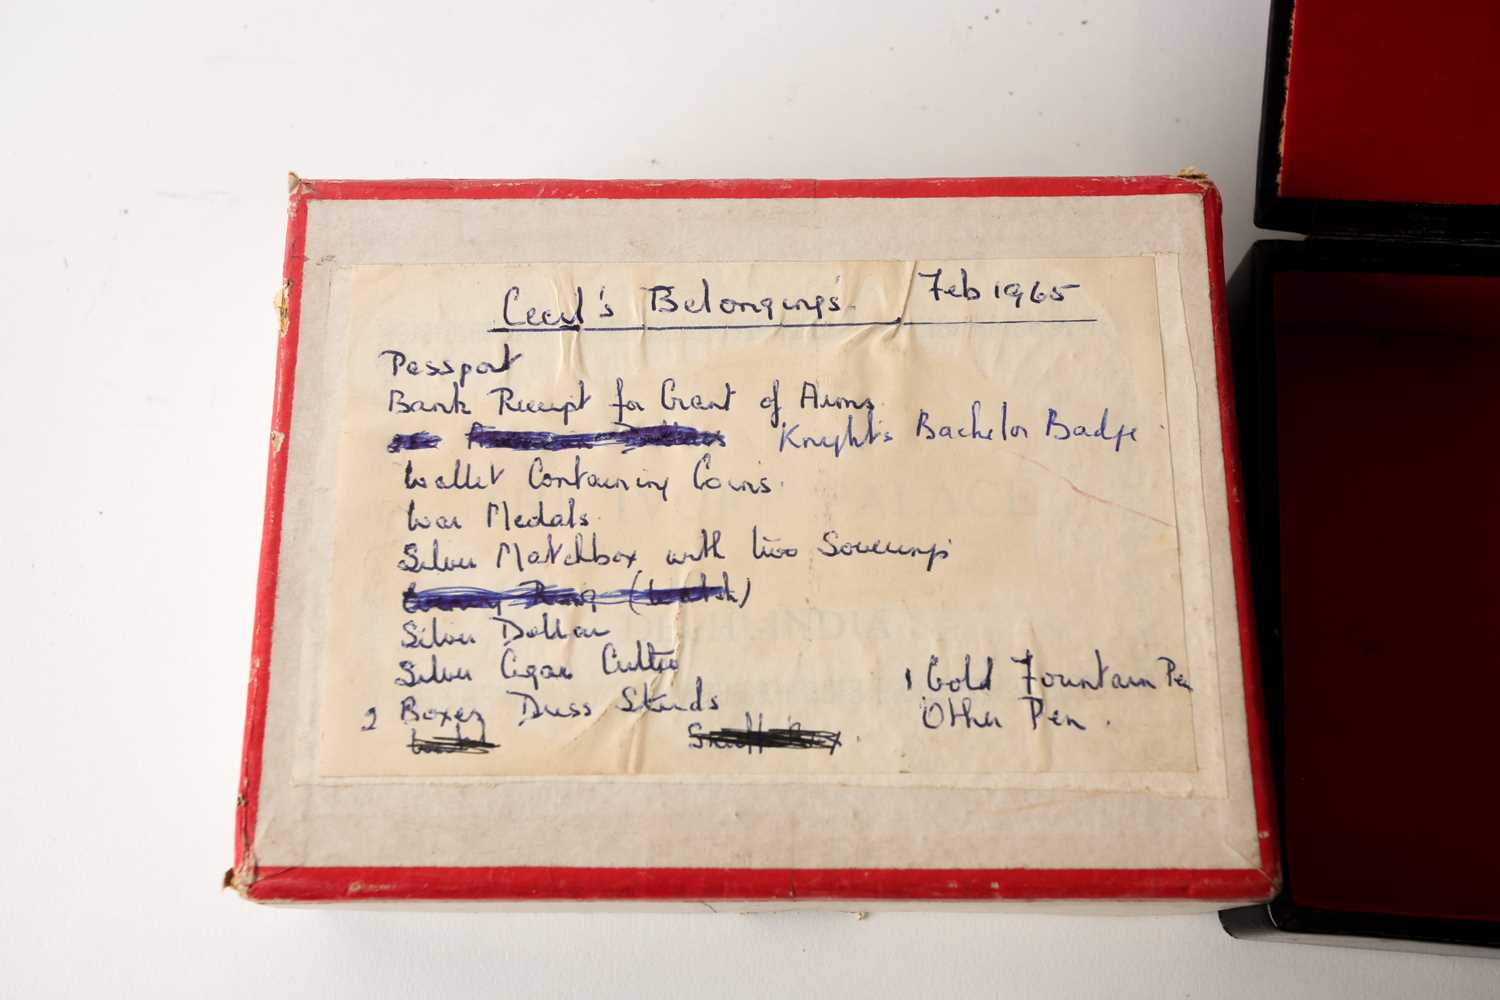 Cecil's Belongings. Feb 1965
Passport
Bank Receipt for Grant of Arms.
Knights Bachelor Badge
Wallet Containing Coins.
War Medals.
Silver Matchbox with two Sovereigns
Silver Dollar
Silver Cigar Cutter
2 Boxes Dress Studs
1 Gold Fountain Pen
Other Pen.
Snuff Box.